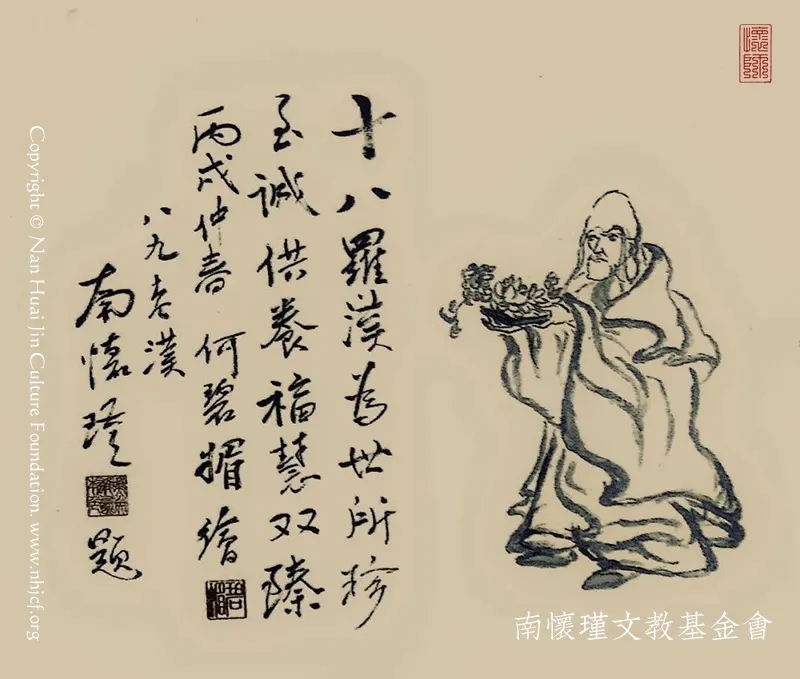 懷師
十八羅漢為世所珍
至誠供養福慧双臻
丙戌仲春 何碧媚繪
八九老漢
南懷瑾 題
南懷瑾文教基金會
Copyright © Nan Huai Jin Culture Foundation. www.nhjcf.org